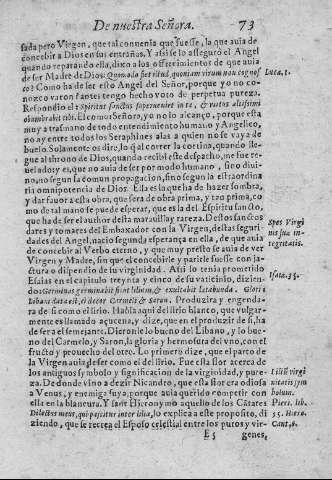 De nuestra Señora. 73
sada pero Virgen, que tal conuenia que fuesse, la que auia de
concebir a Dios en sus entrañas. Y assi se lo asseguró el Angel
quando reparando ella, dixo a los ofrecimientos de que auia
de ser Madre de Dios: Quomodo fiet istud, quoniam virum non cognos-
Luca, 1.
co? Como ha de ser esto Angel del Señor, porque yo no co-
nozco varon? antes tengo hecho voto de perpetua pureza.
Respondio el: Spiritus sanctus superueniet in te, & virtus altissimi
obumbrabit tibi. El como Señora, yo no lo alcanço, porque esta
muy a trasmano de todo entendimiento humano y Angelico,
no ay entre todos los Seraphines alas a quien no se vaya de
buelo. Solamente os dire, lo que al correr la cortina, quando lle-
gue al throno de Dios, quando recibi este despacho, me fue re-
uelado; y es, que no auia de ser por modo humano, sino diui-
no, no segun la comun propagacion, sino segun la extraordina
ria omnipotencia de Dios. Ella es la que ha de hazer sombra,
y dar fauor a esta obra, que sera de obra prima, y tan prima, co-
mo de tal mano se puede esperar, que es la del Espiritu sancto,
que ha de ser el author desta marauilla y rareza. Destos sanctos
dares y tomares del Embaxador con la Virgen, destas seguri-
dades del Angel, nacio segunda esperança en ella, de que auia
Spes Virgi
nis sua in-
tegritatis.
de concebir al Verbo eterno, y que muy presto se auia de ver
Virgen y Madre, sin que el concebirle y parirle fuesse con ja-
ctura o dispendio de su virginidad. Assi lo tenia prometido
Esaias en el capitulo treynta y cinco de su vaticinio, dizien-
Isaia. 35.
do: Germinans germinabit sicut lilium, & exultabit letabunda. Gloria
Libani data est ei, decor Carmeli & Saron. Produzira y engendra-
ra de si como el lirio. Habla aqui del lirio blanco, que vulgar-
mente es llamado açucena; y dize, que en el produzir de si, ha
de ser a el semejante. Dieronle lo bueno del Libano, y lo bue-
no del Carmelo, y Saron, la gloria y hermosura del vno, con el
fructo y prouecho del otro. Lo primero dize, que el parto de
la Virgen auia de ser como el del lirio. Fue esta flor acerca de
los antiguos symbolo y significacion de la virginidad, y pure-
Lilium virgi
nitatis sym
bolum.
za. De donde vino a dezir Nicandro, que esta flor era odiosa
a Venus, y enemiga suya, porque auia querido competir con
ella en la blancura. Y sanct Hieronymo aquello de los Cantares
Pieri. lib.
55. Hiero.
Cant, 6.
Dilectus meus, qui pascitur inter lilia, lo explica a este proposito, di
ziendo, que se recrea el Esposo celestial entre los puros y vir-
E 5 genes,